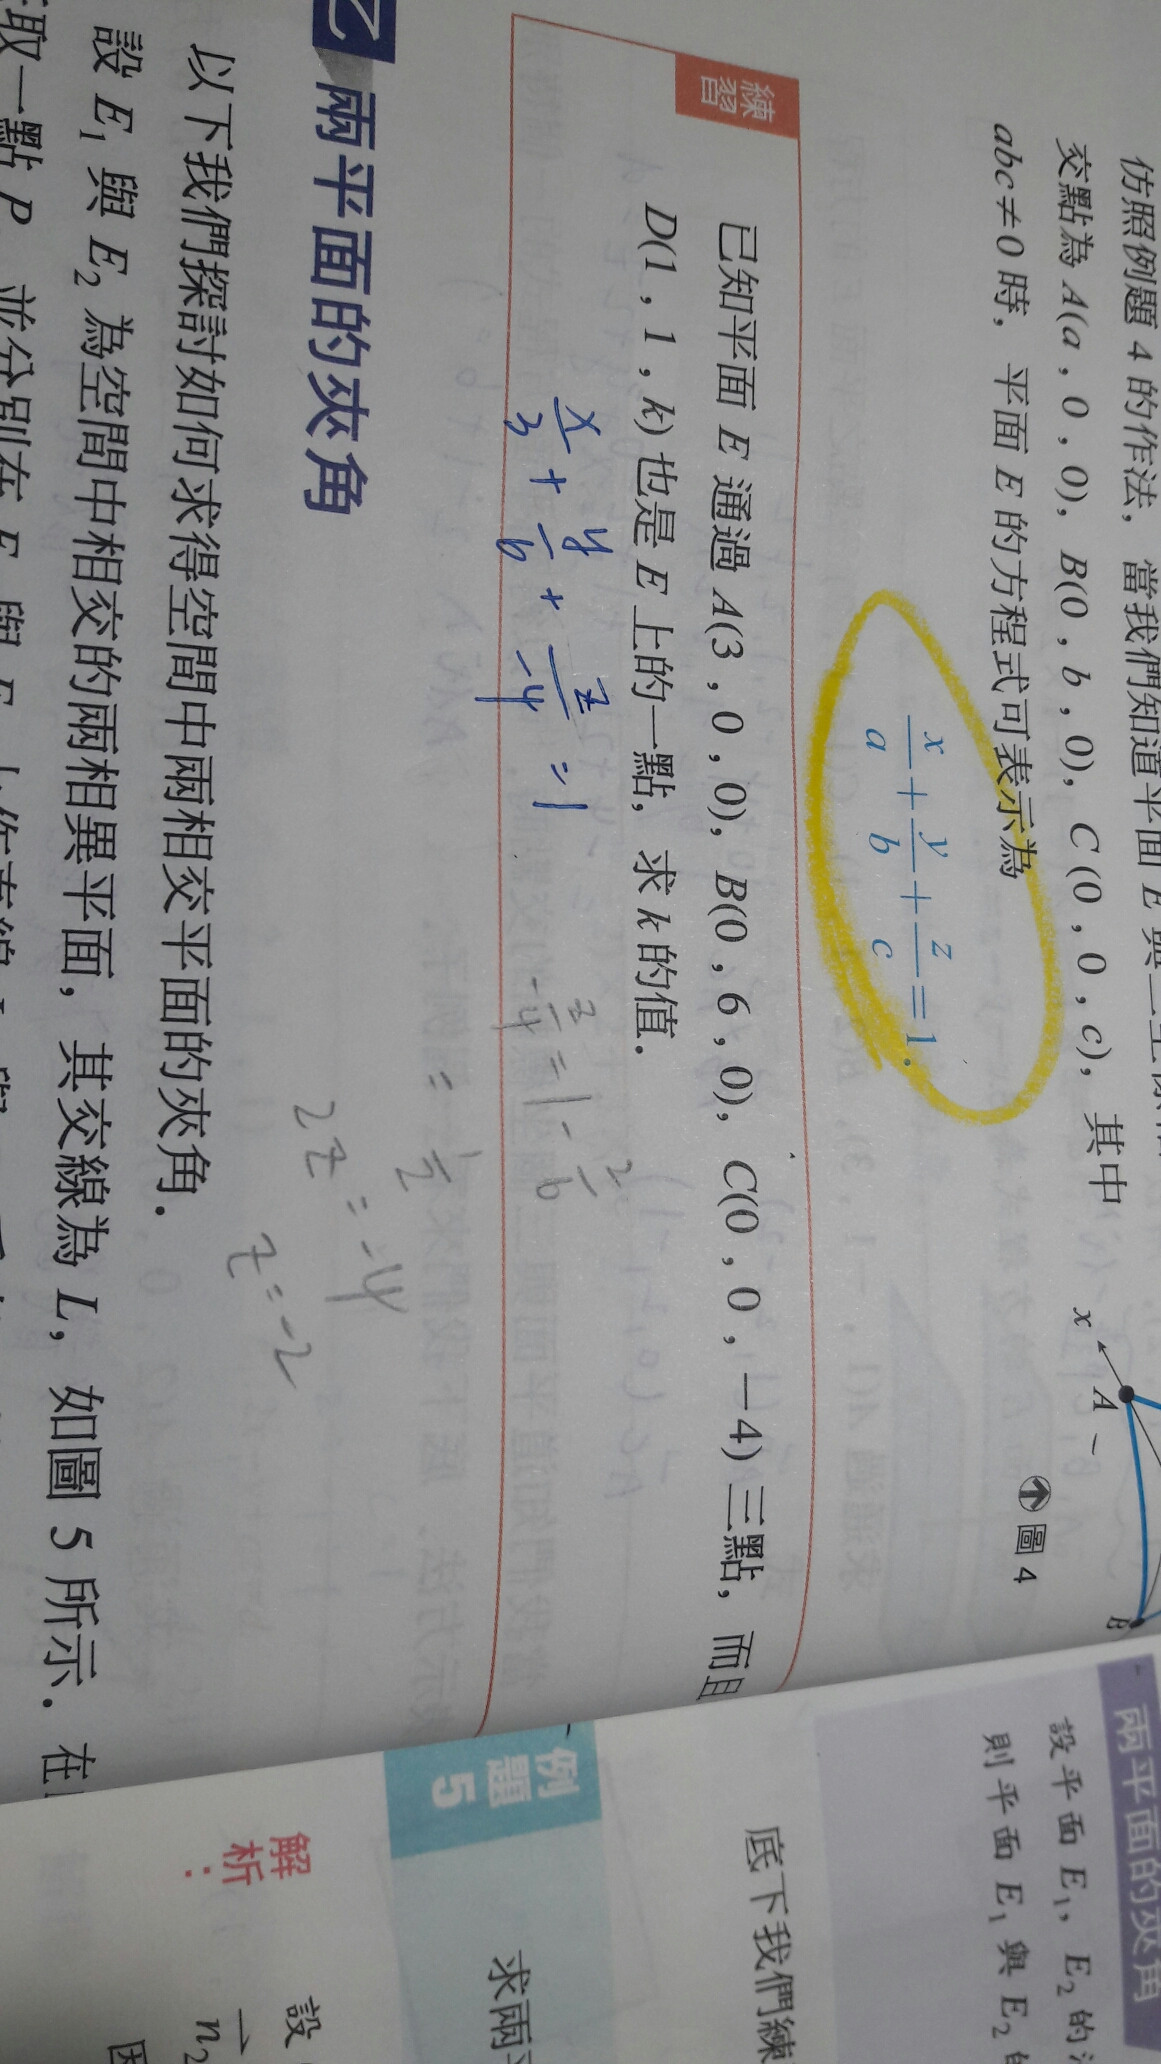 仿照例題 4 的作法，當我們知道平面 E 與三
交點為 A(a , 0 , 0), B(0 , b , 0), C(0 , 0 , c)，其中
abc≠0 時，平面 E 的方程式可表示為
x/a + y/b + z/c = 1.
x
A
B
圖 4
練習
已知平面 E 通過 A(3 , 0 , 0), B(0 , 6 , 0), C(0 , 0 , −4) 三點，而且
D(1 , 1 , k) 也是 E 上的一點，求 k 的值.
x/3 + y/6 + z/-4 = 1
2z = -4
z = -2
乙 兩平面的夾角
以下我們探討如何求得空間中兩相交平面的夾角.
設 E₁ 與 E₂ 為空間中相交的兩相異平面，其交線為 L，如圖 5 所示. 在
取一點 P，並分別在 E
兩平面的夾角
設平面 E₁, E₂ 的
則平面 E₁ 與 E₂
底下我們練
例題 5
求兩
解析：
設
n₂